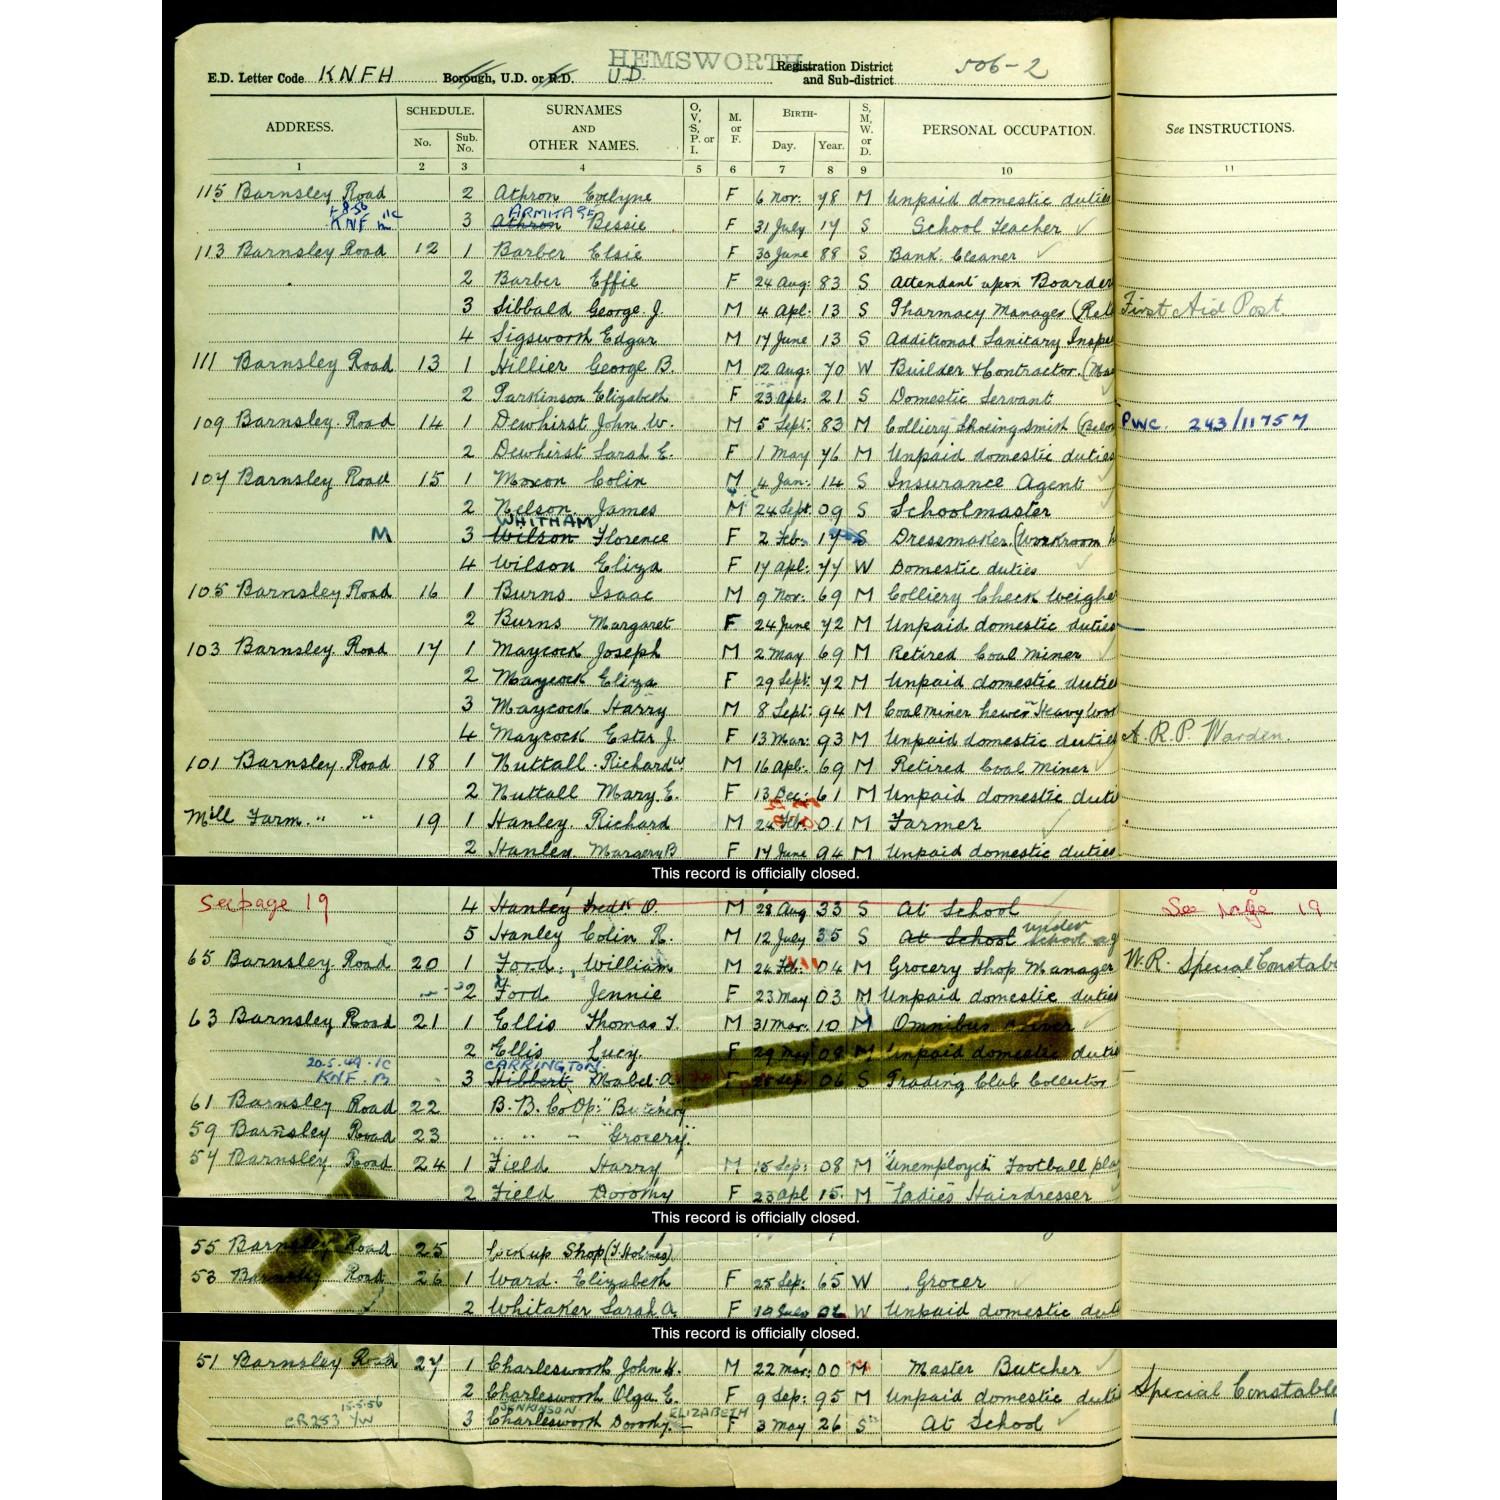 HEMSWORTH
E.D. Letter Code KNFH Borough, U.D. or R.D. U.D. Registration District and Sub-district 506-2
ADDRESS. SCHEDULE. No. Sub. No. SURNAMES AND OTHER NAMES. O, V, S, P. or I. M. or F. BIRTH- Day. Year. S, M, W. or D. PERSONAL OCCUPATION. See INSTRUCTIONS.
1 2 3 4 5 6 7 8 9 10 11
115 Barnsley Road 2 Athron Evelyne F 6 Nov. 78 M Unpaid domestic duties
ARMITAGE
KNF 3 Athron Bessie F 31 July 17 S School Teacher
113 Barnsley Road 12 1 Barber Elsie F 30 June 88 S Bank Cleaner
2 Barber Effie F 24 Aug: 83 S Attendant upon Boarder
3 Sibbald George J. M 4 Apl: 13 S Pharmacy Manager (Ret First Aid Post
4 Sigsworth Edgar M 17 June 13 S Additional Sanitary Inspe
111 Barnsley Road 13 1 Hillier George B. M 12 Aug: 70 W Builder & Contractor. (Mas
2 Parkinson Elizabeth F 23 Apl: 21 S Domestic Servant
109 Barnsley Road 14 1 Dewhirst John W. M 5 Sept: 83 M Colliery Shoeing Smith (Below PWC. 243/11757
2 Dewhirst Sarah E. F 1 May 76 M Unpaid domestic duties
107 Barnsley Road 15 1 Moxon Colin M 4 Jan: 14 S Insurance Agent
2 Nelson James M 24 Sept 09 S Schoolmaster
WHITHAM
M 3 Wilson Florence F 2 Feb: 17 S Dressmaker (Workroom h
4 Wilson Eliza F 17 Apl: 77 W Domestic duties
105 Barnsley Road 16 1 Burns Isaac M 9 Nov: 69 M Colliery Check Weighe
2 Burns Margaret F 24 June 72 M Unpaid domestic duties
103 Barnsley Road 17 1 Maycock Joseph M 2 May 69 M Retired Coal Miner
2 Maycock Eliza F 29 Sept: 72 M Unpaid domestic dutie
3 Maycock Harry M 8 Sept: 94 M Coal miner hewer "Heavy Wor
4 Maycock Ester J. F 13 Mar: 93 M Unpaid domestic duties A.R.P. Warden.
101 Barnsley Road 18 1 Nuttall Richard W. M 16 Apl: 69 M Retired Coal Miner
2 Nuttall Mary E. F 13 Dec: 61 M Unpaid domestic duti
Mill Farm " " 19 1 Hanley Richard M 24 Feb: 01 M Farmer
2 Hanley Margery B F 17 June 94 M Unpaid domestic duties
This record is officially closed.
See page 19 4 Hanley Fredk O. M 28 Aug 33 S At School See page 19
5 Hanley Colin R. M 12 July 35 S At School under school ag
65 Barnsley Road 20 1 Ford William M 24 Feb: 04 M Grocery Shop Manager W.R. Special Constab
2 Ford Jennie F 23 May 03 M Unpaid domestic duties
63 Barnsley Road 21 1 Ellis Thomas T. M 31 Mar. 10 M Omnibus Driver
2 Ellis Lucy F 29 May 08 M Unpaid domestic dutie
20.5.49 IC CARRINGTON.
KNF 3 Hibbert Mabel A. F 25 Sep: 06 S Trading Club Collector
61 Barnsley Road 22 B.B. Co Op: "Butchery"
59 Barnsley Road 23 " " - "Grocery".
57 Barnsley Road 24 1 Field Harry M 15 Sep: 08 M "Unemployed" Football pla
2 Field Dorothy F 23 Apl 15 M Ladies Hairdresser
This record is officially closed.
55 Barnsley Road 25 Lock up Shop (T. Holmes)
53 Barnsley Road 26 1 Ward Elizabeth F 25 Sep: 65 W Grocer
2 Whitaker Sarah A. F 19 W Unpaid domestic duti
This record is officially closed.
51 Barnsley Road 27 1 Charlesworth John H. M 22 Mar: 00 M Master Butcher
2 Charlesworth Olga E. F 9 Sep: 95 M Unpaid domestic duti Special Constable
15.5.56 JENKINSON ELIZABETH
CR253 YW 3 Charlesworth Dorothy F 3 May 26 S At School